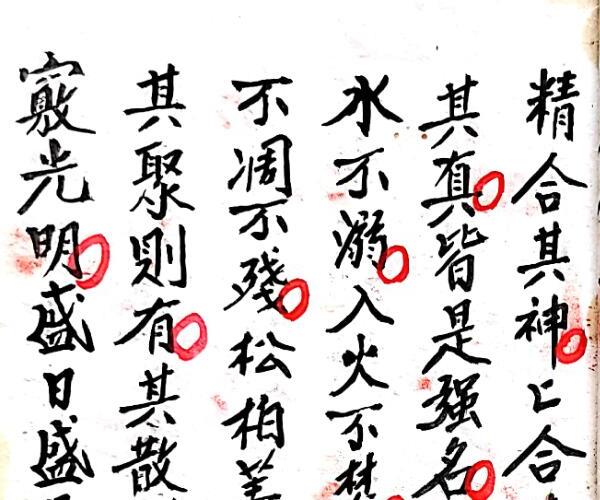 精合其神々合
其真皆是强名
水不溺入火不
不凋不殘松柏
其聚則有其散
竅光明盛日盛